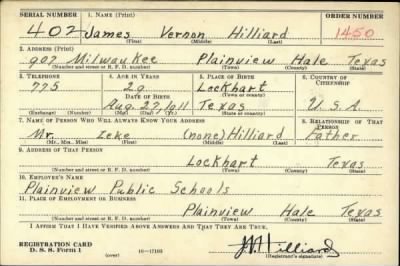 SERIAL NUMBER 1. NAME (Print) ORDER NUMBER
402 James Vernon Hilliard 1450
(First) (Middle) (Last)
2. ADDRESS (Print)
907 Milwaukee Plainview Hale Texas
(Number and street or R. F. D. number) (Town) (County) (State)
3. TELEPHONE 4. AGE IN YEARS 5. PLACE OF BIRTH 6. COUNTRY OF CITIZENSHIP
775 29 Lockhart
DATE OF BIRTH (Town or county)
Aug. 27, 1911 Texas U.S.A.
(Exchange) (Number) (Mo.) (Day) (Yr.) (State or country)
7. NAME OF PERSON WHO WILL ALWAYS KNOW YOUR ADDRESS 8. RELATIONSHIP OF THAT PERSON
Mr. Zeke (none) Hilliard Father
(Mr., Mrs., Miss) (First) (Middle) (Last)
9. ADDRESS OF THAT PERSON
Lockhart Texas
(Number and street or R. F. D. number) (Town) (County) (State)
10. EMPLOYER'S NAME
Plainview Public Schools
11. PLACE OF EMPLOYMENT OR BUSINESS
Plainview Hale Texas
(Number and street or R. F. D. number) (Town) (County) (State)
I AFFIRM THAT I HAVE VERIFIED ABOVE ANSWERS AND THAT THEY ARE TRUE.
REGISTRATION CARD
D. S. S. Form 1 (over) 16—17105 Hilliard
(Registrant's signature)